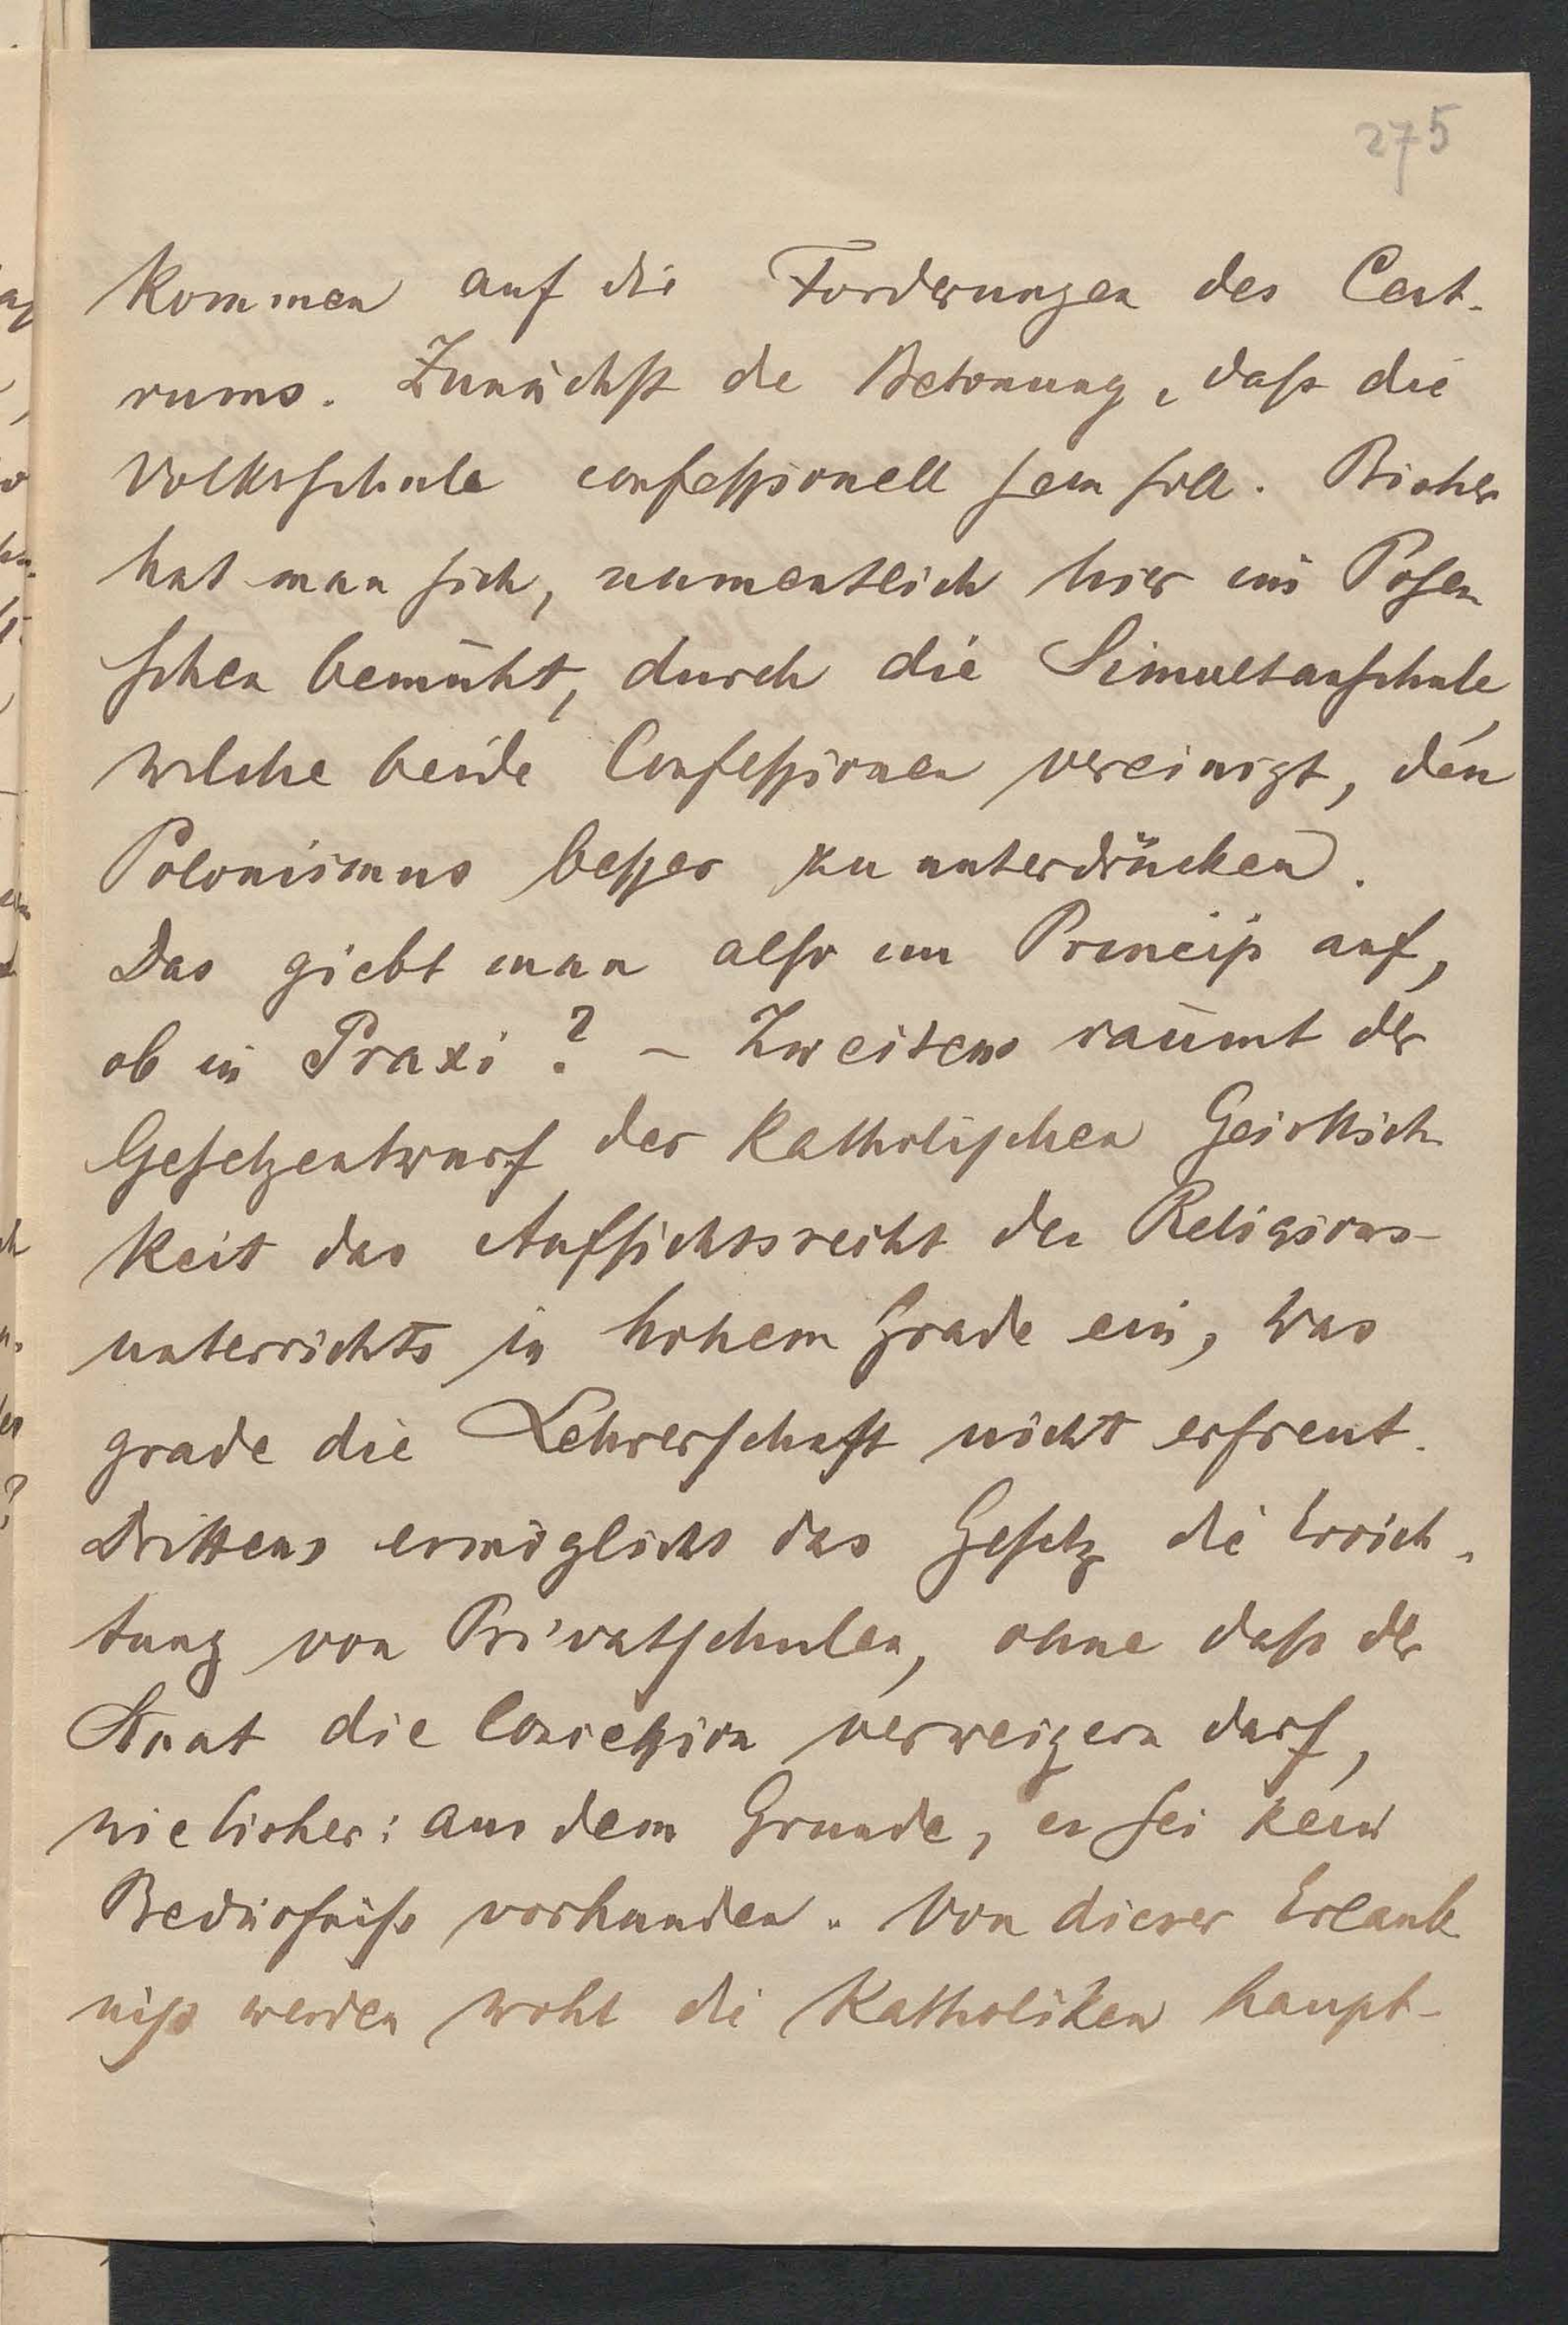 275
kommen auf die Forderungen des Cent-
rums. Zunächst de Betonung, daß die
Volksschule confessionell sein soll. Bisher
hat man sich, namentlich hier im Posen
schen bemüht, durch die Simultanschule,
welche beide Confessionen vereinigt, den
Polonismus besser zu unterdrücken.
Das giebt man also im Princip auf,
ob in Praxi? – Zweitens räumt der
Gesetzentwurf der katholischen Geistlich
keit das Aufsichtsrecht des Religions-
unterrichts in hohem Grade ein, was
grade die Lehrerschaft nicht erfreut.
Drittens ermöglicht das Gesetz die Errich-
tung von Privatschulen, ohne daß der
Staat die Concession verweigern darf,
wie bisher: aus dem Grunde, es sei kein
Bedürfniß vorhanden. Von dieser Erlaub
niß werden wohl die Katholiken haupt-